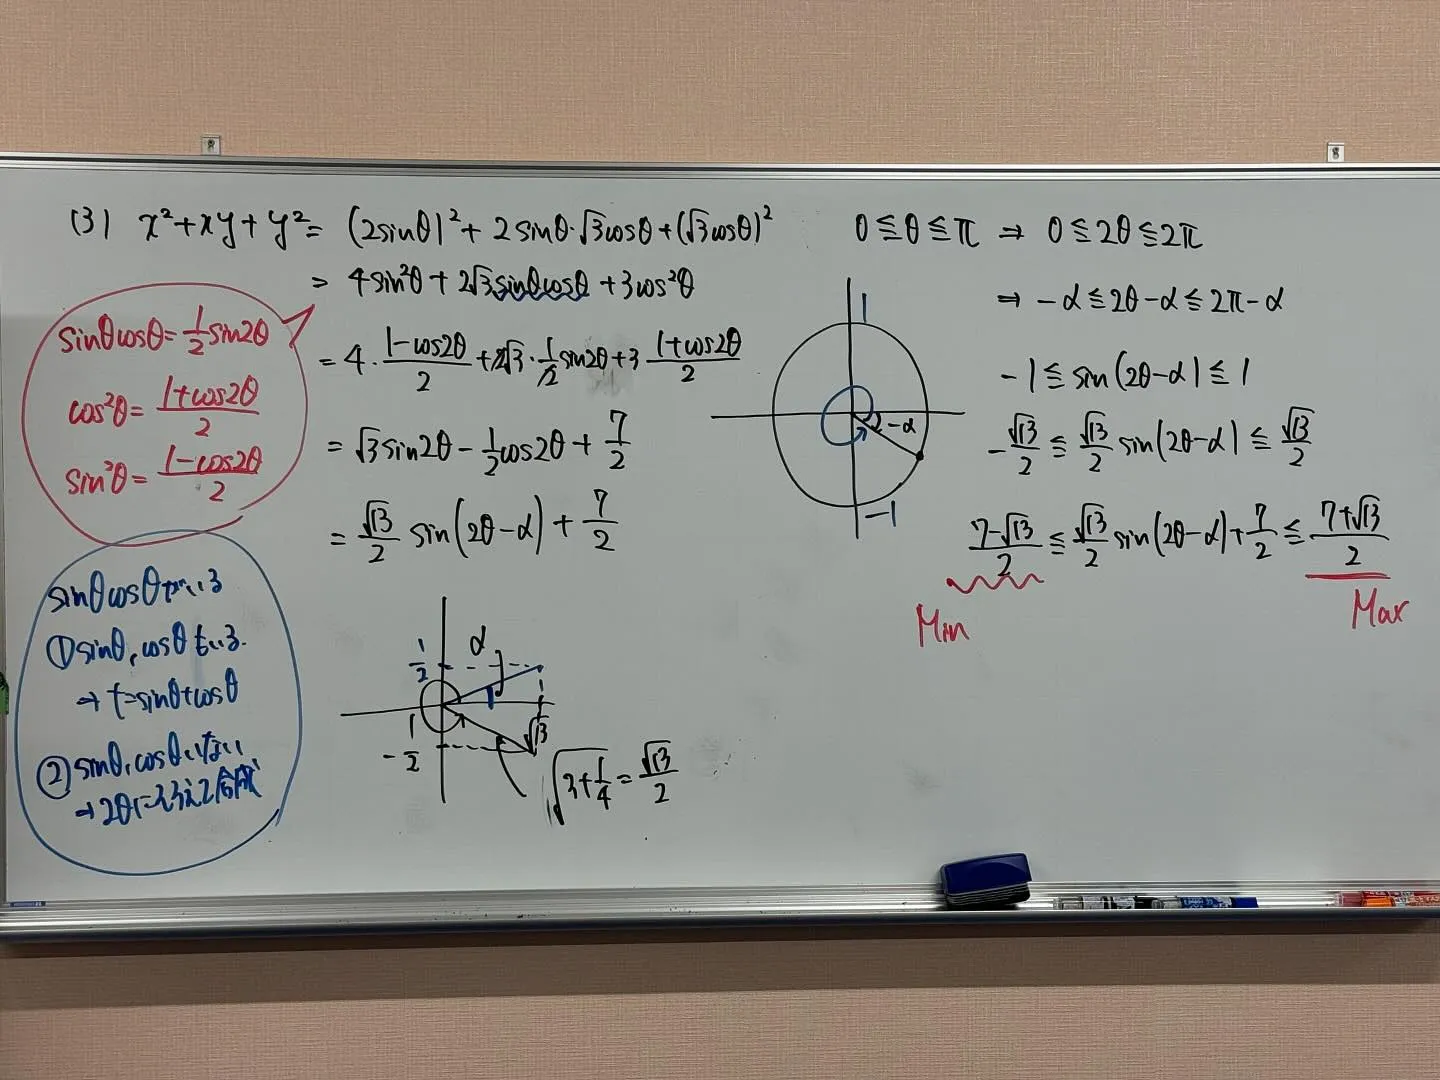 (3) x²+xy+y²= (2sinθ)²+2sinθ·√3cosθ+(√3cosθ)²
= 4sin²θ+2√3sinθcosθ+3cos²θ
= 4·(1-cos2θ)/2+2√3·1/2 sin2θ+3 (1+cos2θ)/2
= √3sin2θ-1/2cos2θ+7/2
= √13/2 sin(2θ-α)+7/2
sinθcosθ=1/2sin2θ
cos²θ=(1+cos2θ)/2
sin²θ=(1-cos2θ)/2
sinθcosθ
①sinθ,cosθもいる.
⇒ t=sinθ+cosθ
②sinθ,cosθいない
⇒2θにそろえて合成
1/2
α
-1/2
√13
√(3+1/4)=√13/2
0≦θ≦π ⇒ 0≦2θ≦2π
⇒ -α≦2θ-α≦2π-α
-1≦sin(2θ-α)≦1
-√13/2≦√13/2 sin(2θ-α)≦√13/2
(7-√13)/2≦√13/2 sin(2θ-α)+7/2≦(7+√13)/2
Min
Max
1
-α
-1